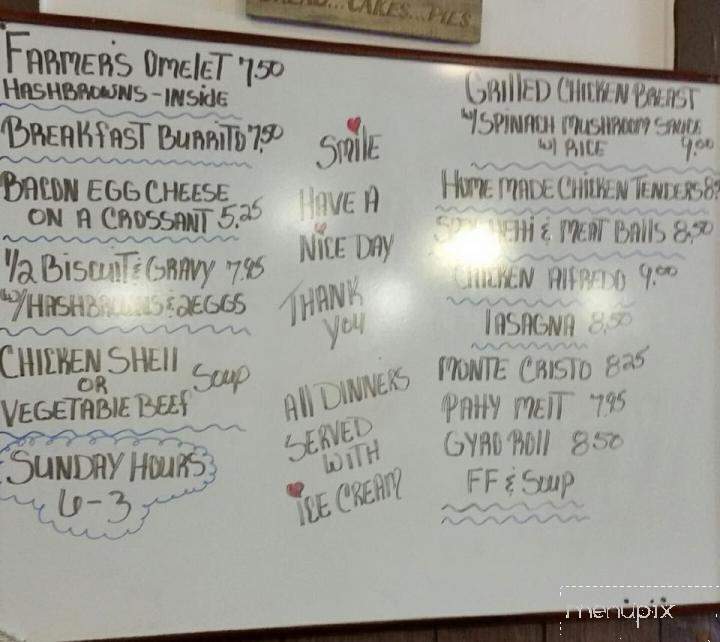 CAKES...PIES
FARMER'S OMELET 7.50
HASHBROWNS-INSIDE
BREAKFAST BURRITO 7.50
BACON EGG CHEESE
ON A CROSSANT 5.25
1/2 BISCUIT & GRAVY 7.95
w/HASHBROWNS & 2EGGS
CHICKEN SHELL
OR
VEGETABLE BEEF
SOUP
SUNDAY HOURS
6-3
SMILE
HAVE A
NICE DAY
THANK
YOU
All DINNERS
SERVED
WITH
ICE CREAM
GRILLED CHICKEN BREAST
w/SPINACH MUSHROOM SAUCE
w/ RICE 9.00
HOME MADE CHICKEN TENDERS
& MEAT BALLS 8.50
CHICKEN ALFREDO 9.00
LASAGNA 8.50
MONTE CRISTO 8.25
PATTY MELT 7.95
GYRO ROLL 8.50
FF & SOUP
menupix